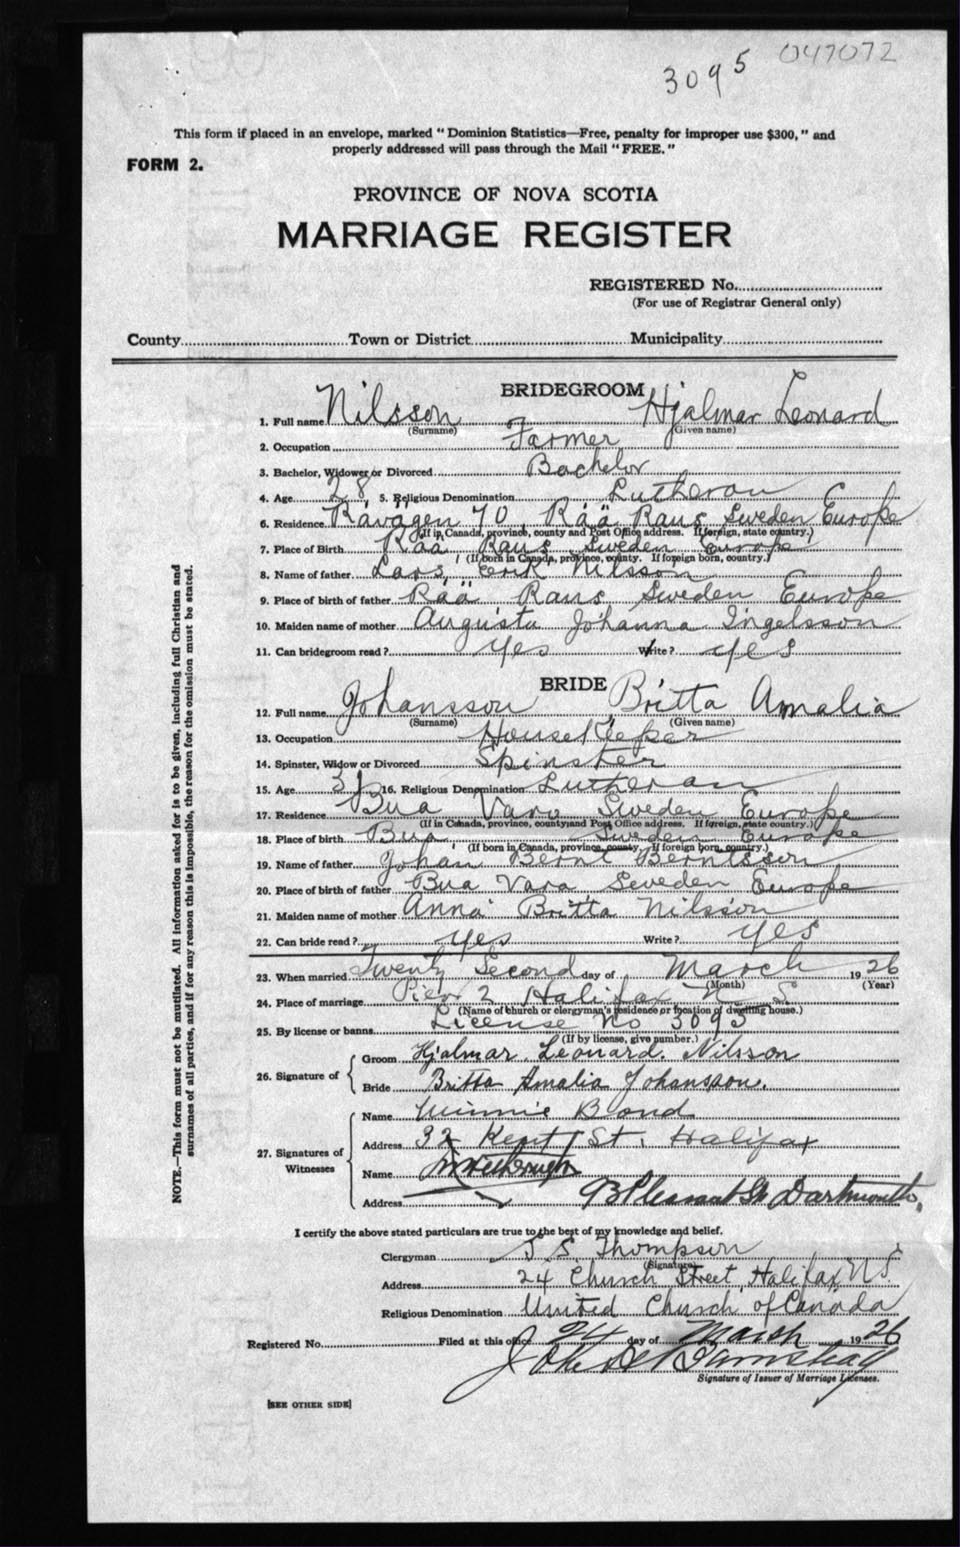 3095 047072
This form if placed in an envelope, marked "Dominion Statistics—Free, penalty for improper use $300," and
properly addressed will pass through the Mail "FREE."
FORM 2.
PROVINCE OF NOVA SCOTIA
MARRIAGE REGISTER
REGISTERED No.
(For use of Registrar General only)
County Town or District Municipality
BRIDEGROOM
1. Full name Nilsson Hjalmar Leonard
(Surname) (Given name)
2. Occupation Farmer
3. Bachelor, Widower or Divorced Bachelor
4. Age 28 5. Religious Denomination Lutheran
6. Residence Råvägen 70 Råä Raus Sweden Europe
(If in Canada, province, county and Post Office address. If foreign, state country.)
7. Place of Birth Råå Raus Sweden Europe
(If born in Canada, province, county. If foreign born, country.)
8. Name of father Lars Erik Nilsson
9. Place of birth of father Råä Raus Sweden Europe
10. Maiden name of mother Augusta Johanna Ingelsson
11. Can bridegroom read? yes Write? yes
BRIDE
12. Full name Johansson Britta Amalia
(Surname) (Given name)
13. Occupation HouseKeeper
14. Spinster, Widow or Divorced Spinster
15. Age 31 16. Religious Denomination Lutheran
17. Residence Bua Vara Sweden Europe
(If in Canada, province, county and Post Office address. If foreign, state country.)
18. Place of birth Bua Sweden Europe
(If born in Canada, province, county. If foreign born, country.)
19. Name of father Johan Bernt Berntsson
20. Place of birth of father Bua Vara Seweden Europe
21. Maiden name of mother Anna Britta Nilsson
22. Can bride read? yes Write? yes
23. When married Twenty Second day of March 1926
(Month) (Year)
24. Place of marriage Pier 2 Halifax N. S.
(Name of church or clergyman's residence or location of dwelling house.)
25. By license or banns License No 3095
(If by license, give number.)
26. Signature of Groom Hjalmar Leonard Nilsson
Bride Britta Amalia Johansson.
27. Signatures of Witnesses
Name Minnie Bond
Address 32 Kent St. Halifax
Name
Address Pleasant St Dartmouth.
I certify the above stated particulars are true to the best of my knowledge and belief.
Clergyman J S Thompson
(Signature)
Address 24 Church Street, Halifax N S.
Religious Denomination United Church of Canada
Registered No. Filed at this office 24 day of Marsh 1926
Signature of Issuer of Marriage Licenses.
[SEE OTHER SIDE]
NOTE.—This form must not be mutilated. All information asked for is to be given, including full Christian and
surnames of all parties, and if for any reason this is impossible, the reason for the omission must be stated.